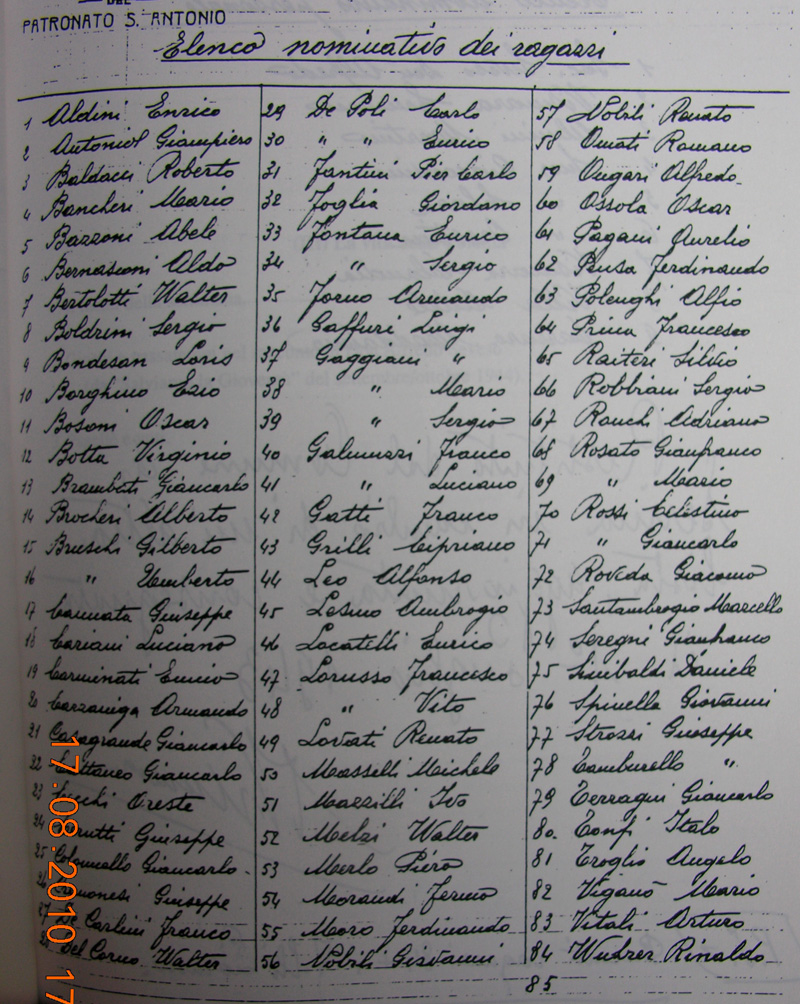 DEL
PATRONATO S. ANTONIO
Elenco nominativo dei ragazzi
1 Aldini Enrico
2 Antoniol Giampiero
3 Baldacci Roberto
4 Bancheri Mario
5 Bazzoni Abele
6 Bernasconi Aldo
7 Bertolotti Walter
8 Boldrini Sergio
9 Bondesan Loris
10 Borghino Ezio
11 Bosoni Oscar
12 Botta Virginio
13 Brambati Giancarlo
14 Brocheri Alberto
15 Bruschi Gilberto
16 " Umberto
17 Cannata Giuseppe
18 Cariani Luciano
19 Carminati Ennio
20 Cazzaniga Armando
21 Casagrande Giancarlo
22 Cattaneo Giancarlo
23 Cecchi Oreste
24 Giuseppe
25 Colonnello Giancarlo
26 Giuseppe
27 De Carlini Franco
28 Del Corno Walter
29 De Poli Carlo
30 " " Enrico
31 Fantini Pier Carlo
32 Foglia Giordano
33 Fontana Enrico
34 " Sergio
35 Forno Armando
36 Gaffuri Luigi
37 Gaggiani "
38 " Mario
39 " Sergio
40 Galmozzi Franco
41 " Luciano
42 Gatti Franco
43 Grilli Cipriano
44 Leo Alfonso
45 Lesmo Ambrogio
46 Locatelli Enrico
47 Lorusso Francesco
48 " Vito
49 Lovati Renato
50 Masselli Michele
51 Mazzilli Ivo
52 Melzi Walter
53 Merlo Piero
54 Morandi Fermo
55 Moro Ferdinando
56 Nobili Giovanni
57 Nobili Renato
58 Omati Romano
59 Ongari Alfredo
60 Ossola Oscar
61 Pagani Aurelio
62 Pensa Ferdinando
63 Polenghi Alfio
64 Prina Francesco
65 Raiteri Silvio
66 Robbiani Sergio
67 Ronchi Adriano
68 Rosato Gianfranco
69 " Mario
70 Rossi Celestino
71 " Giancarlo
72 Roveda Giacomo
73 Santambrogio Marcello
74 Seregni Gianfranco
75 Sinibaldi Daniele
76 Spinella Giovanni
77 Strozzi Giuseppe
78 Tamburello "
79 Terragni Giancarlo
80. Tonfi Italo
81 Troglio Angelo
82 Viganò Mario
83 Vitali Arturo
84 Wuhrer Rinaldo
85
17.08.2010 17